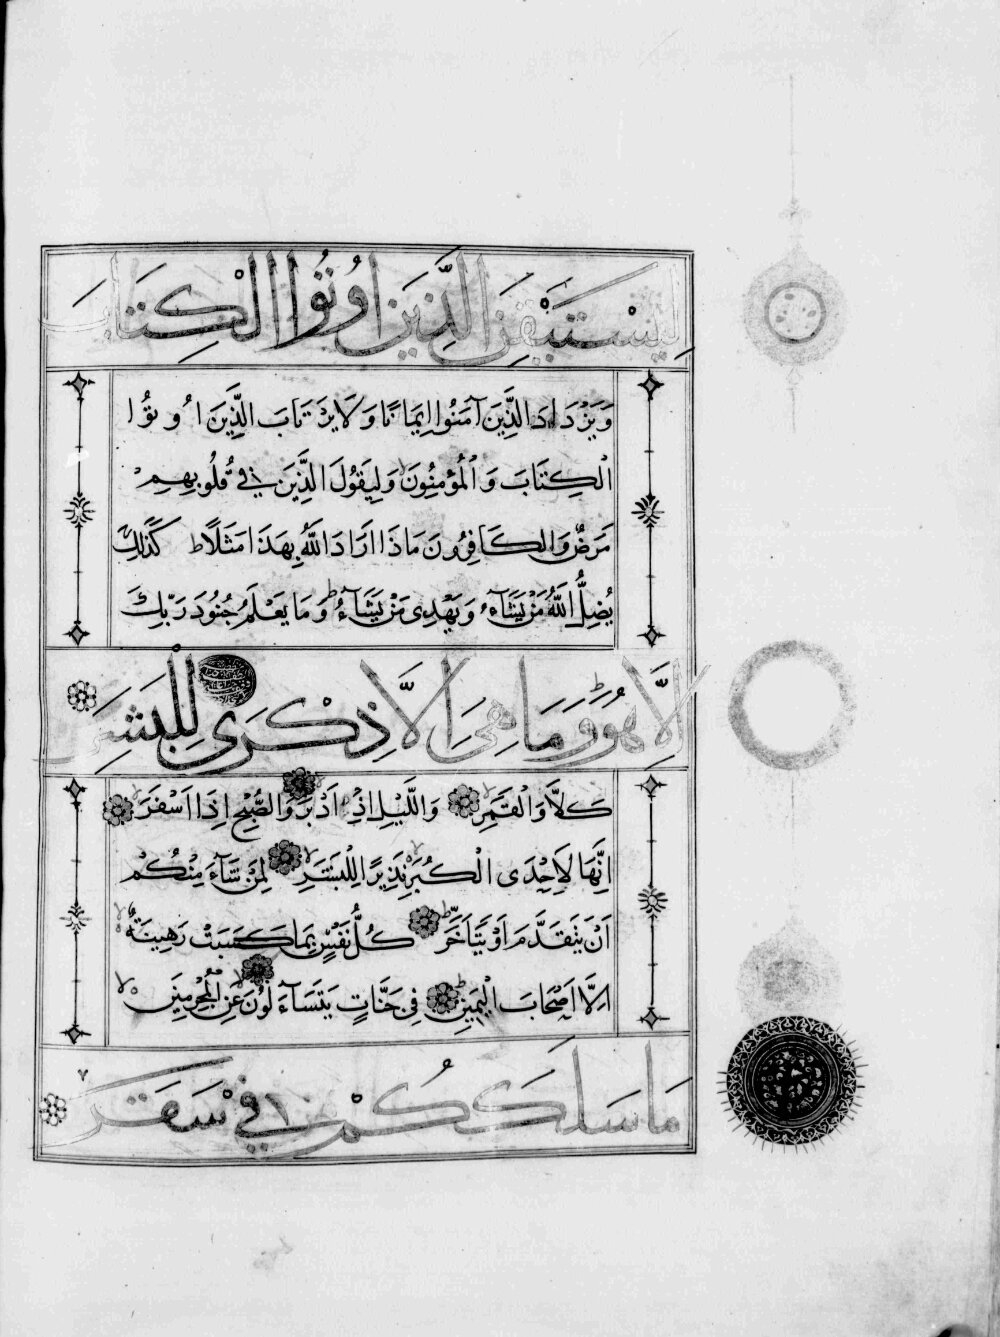 لِيَسْتَيْقِنَ الَّذِينَ اُوتُوا الْكِتَابَ
وَيَزْدَادَ الَّذِينَ آمَنُوا اِيمَانًا وَلَا يَرْتَابَ الَّذِينَ اُوتُوا
الْكِتَابَ وَالْمُؤْمِنُونَ وَلِيَقُولَ الَّذِينَ فِي قُلُوبِهِمْ
مَرَضٌ وَالْكَافِرُونَ مَاذَا اَرَادَ اللَّهُ بِهَذَا مَثَلًا ط كَذَلِكَ
يُضِلُّ اللَّهُ مَنْ يَشَاءُ وَيَهْدِي مَنْ يَشَاءُ ط وَمَا يَعْلَمُ جُنُودَ رَبِّكَ
اِلَّا هُوَ ط وَمَا هِيَ اِلَّا ذِكْرَى لِلْبَشَرِ
كَلَّا وَالْقَمَرِ وَاللَّيْلِ اِذْ اَدْبَرَ وَالصُّبْحِ اِذَا اَسْفَرَ لا
اِنَّهَا لَاِحْدَى الْكُبَرِ لا نَذِيرًا لِلْبَشَرِ لا لِمَنْ شَاءَ مِنْكُمْ
اَنْ يَتَقَدَّمَ اَوْ يَتَاَخَّرَ ط كُلُّ نَفْسٍ بِمَا كَسَبَتْ رَهِينَةٌ لا
اِلَّا اَصْحَابَ الْيَمِينِ ط فِي جَنَّاتٍ يَتَسَاءَلُونَ لا عَنِ الْمُجْرِمِينَ لا
مَا سَلَكَكُمْ فِي سَقَرَ